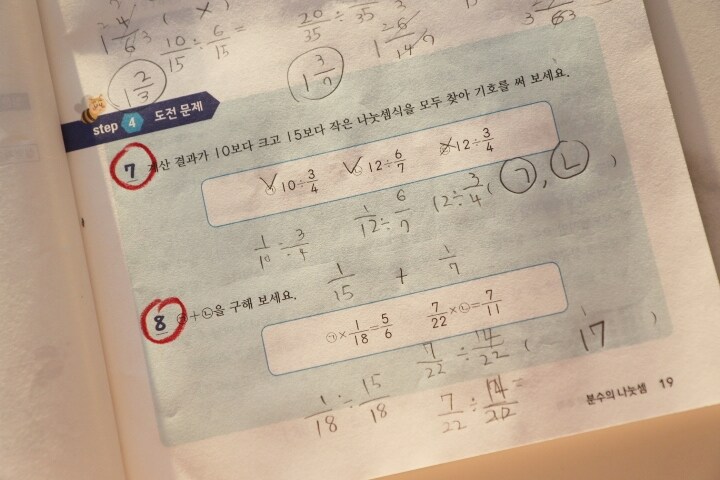 1 4/6 3 ( × )
10/15 ÷ 6/15 =
20/35 ÷ /35
1 6/14 7
1 2/3
1 3/7
step 4 도전 문제
7 계산 결과가 10보다 크고 15보다 작은 나눗셈식을 모두 찾아 기호를 써 보세요.
㉠ 10÷3/4 ㉡ 12÷6/7 ㉢ 12÷3/4
( ㉠, ㉡ )
1/10 ÷ 3/4 1/12 ÷ 6/7 12÷ 3/4
1/15 + 1/7
8 ㉠+㉡을 구해 보세요.
㉠×1/18=5/6 7/22×㉡=7/11
7/22 ÷ 14/22 ( 17 )
1/18 ÷ 15/18 7/22 ÷ 14/22 =
분수의 나눗셈 19